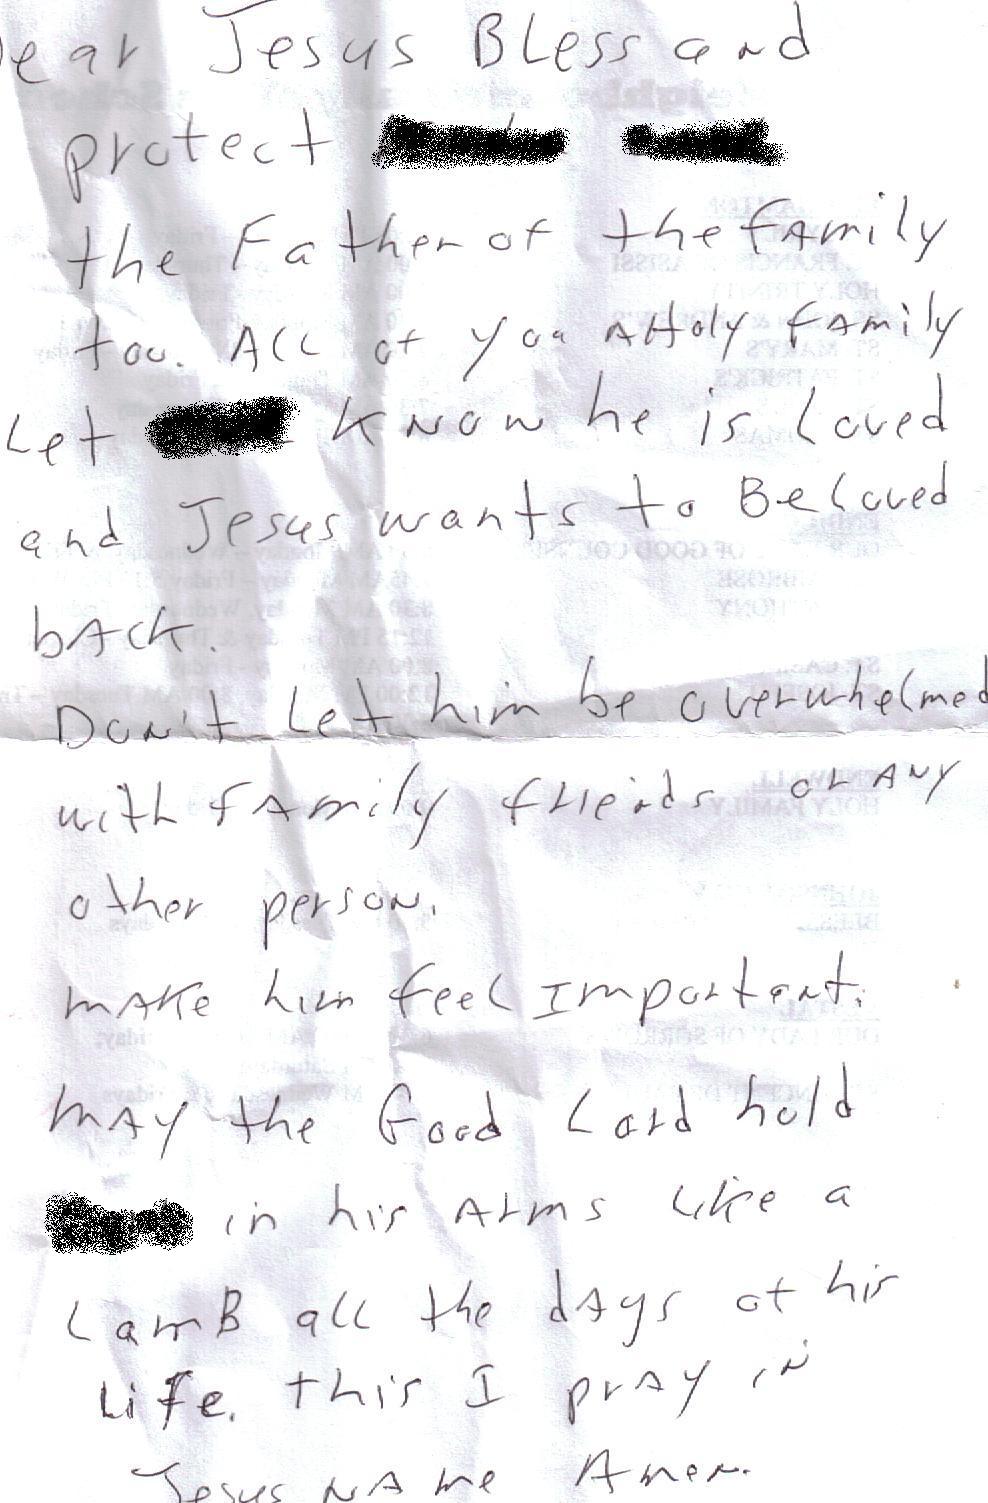 Dear Jesus Bless and
protect
the Father of the family
too. All of you A Holy family
Let know he is loved
and Jesus wants to Be loved
back.
Don't let him be overwhelmed
with family friends or any
other person.
make him feel Important.
may the Good Lord hold
in his Arms Like a
LamB all the days of his
Life. this I pray in
Jesus name Amen.